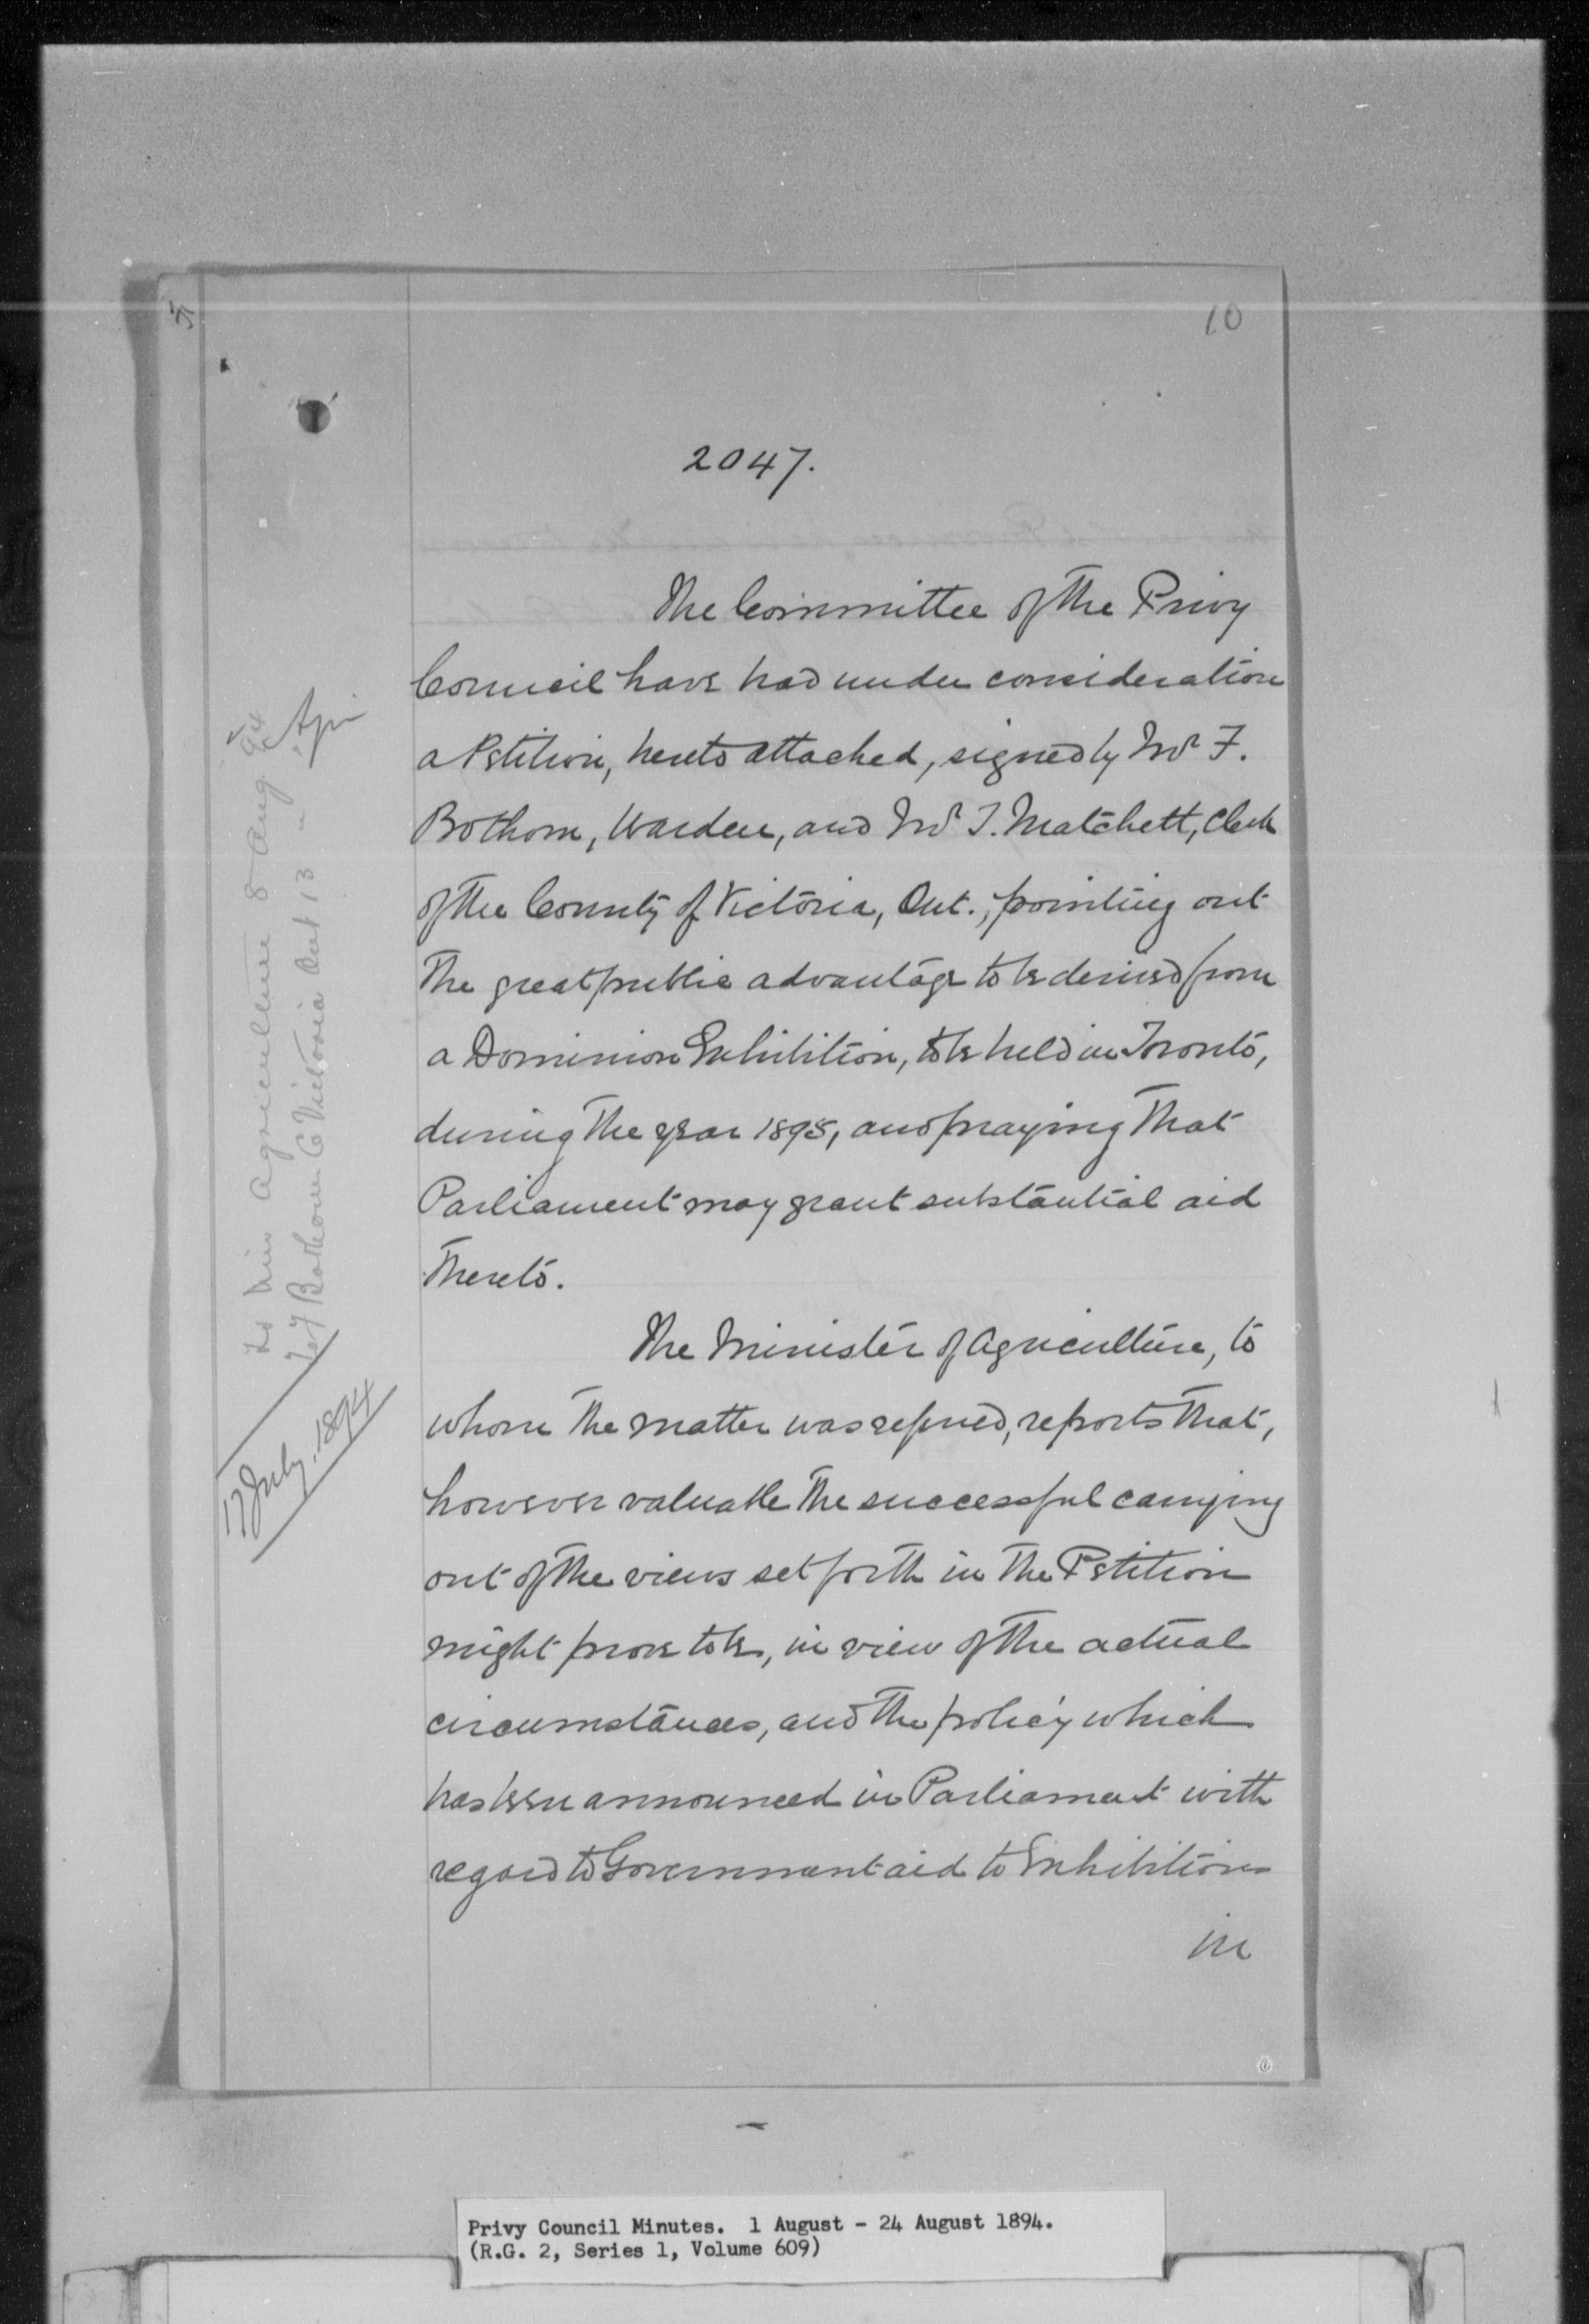 10
2047.
The Committee of the Privy
Council have had under consideration
a Petition, hereto attached, signed by Mr F.
Bothom, Warden, and Mr T. Matchett, Clerk
of the County of Victoria, Ont., pointing out
the great public advantage to be derived from
a Dominion Exhibition, to be held in Toronto,
during the year 1895, and praying that
Parliament may grant substantial aid
thereto.
The Minister of Agriculture, to
whom the matter was referred, reports that,
however valuable the successful carrying
out of the views set forth in the Petition
might prove to be, in view of the actual
circumstances, and the policy which
has been announced in Parliament with
regard to Government aid to Exhibitions
in
To Min Agriculture 8 Aug 94
To F Bothom C Victoria Ont 13 "
17 July, 1894
Privy Council Minutes. 1 August - 24 August 1894.
(R.G. 2, Series 1, Volume 609)